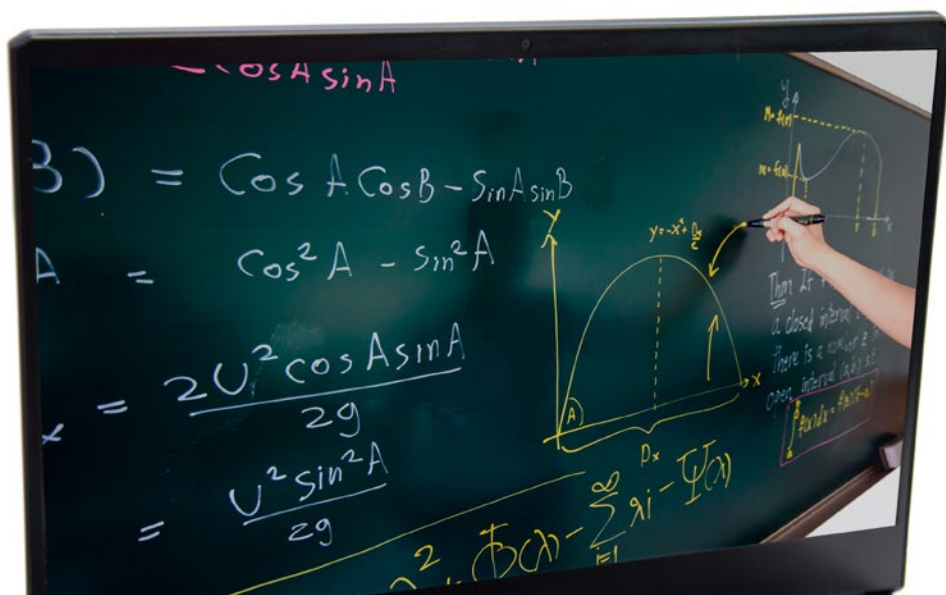 cosA sinA
B) = CosA.CosB - SinA sinB
A = cos²A - sin²A
x = 2U² cosA sinA / 2g
= U² sin²A / 2g
y
y = -x² + Dx/c
A
x
Dx
² + Φ(λ) - ∑ i=1 ∞ λi - Ψ(λ)
y
M = f(
m = f(
x
Thm If
a closed interval
there is a number
open interval (a,b) s.t.
∫ f(x)dx = f(